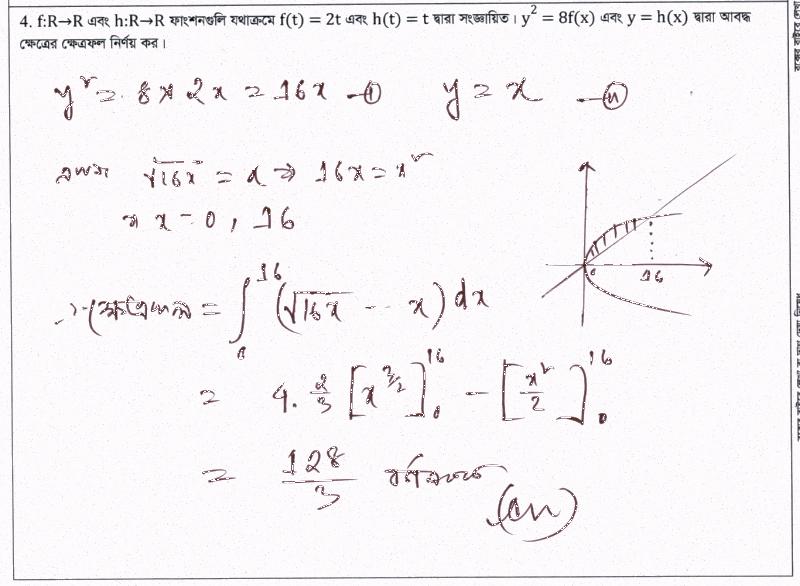 4. f:R→R এবং h:R→R ফাংশনগুলি যথাক্রমে f(t) = 2t এবং h(t) = t দ্বারা সংজ্ঞায়িত। y² = 8f(x) এবং y = h(x) দ্বারা আবদ্ধ
ক্ষেত্রের ক্ষেত্রফল নির্ণয় কর।
y² = 8 × 2x = 16x —(i) y = x —(ii)
এখন √16x = x ⇒ 16x = x²
⇒ x = 0, 16
∴ ক্ষেত্রফল = ∫₀¹⁶ (√16x - x) dx
= 4 . 2/3 [x^{3/2}]₀¹⁶ - [x²/2]₀¹⁶
= 128/3 বর্গএকক
(Ans)
0 16